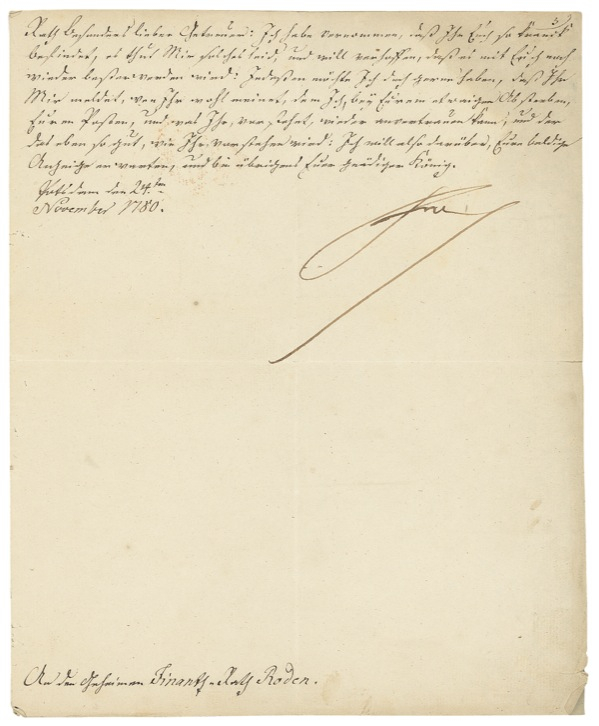 3
Rath, Besonders lieber Getreuer: Ich habe vernommen, daß Ihr Euch so kranck
befindet, es thut Mir solches leid, und will verhoffen, daß es mit Euch noch
wieder besser werden wird: Indeßen möchte Ich doch gerne haben, daß Ihr
Mir meldet, wen Ihr wohl meinet, dem Ich, bey Eurem etwaigen Absterben,
Euren Posten, und was Ihr, vorstehet, wieder anvertrauen kan, und der
das eben so gut, wie Ihr vorstehen wird: Ich will also darüber, Eure baldige
Anzeige erwarten, und bin übrigens Euer gnädiger König.
Potsdam den 24ten
November 1780.
An den Geheimen Finantz-Rath Roden.